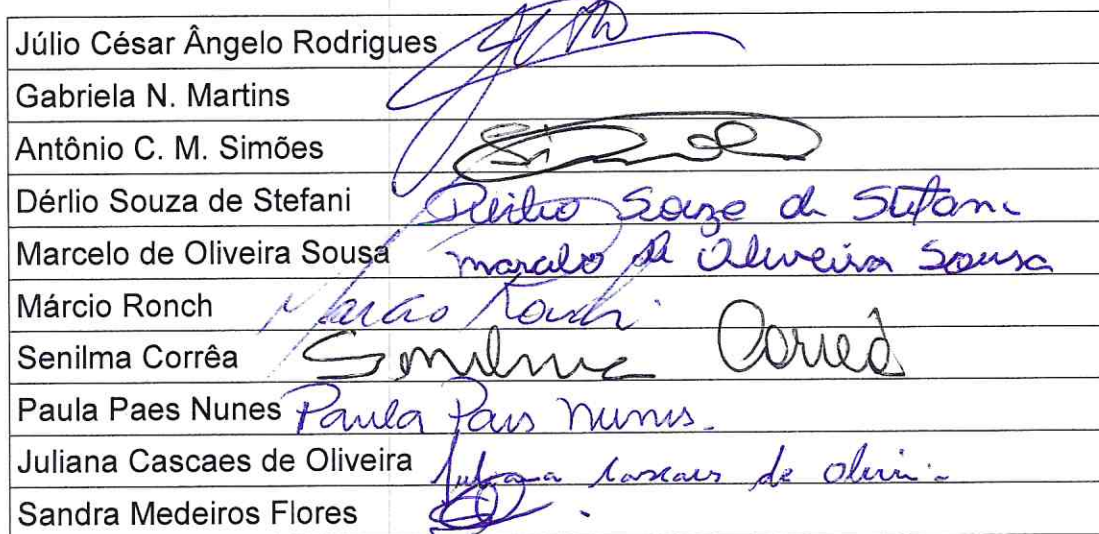 Júlio César Ângelo Rodrigues
Gabriela N. Martins
Antônio C. M. Simões
Dérlio Souza de Stefani Dérlio Souza de Stefani
Marcelo de Oliveira Sousa marcelo de Oliveira Sousa
Márcio Ronch Marcio Ronch
Senilma Corrêa Senilma Corrêa
Paula Paes Nunes Paula Paes Nunes.
Juliana Cascaes de Oliveira Juliana Cascaes de Oliveira
Sandra Medeiros Flores